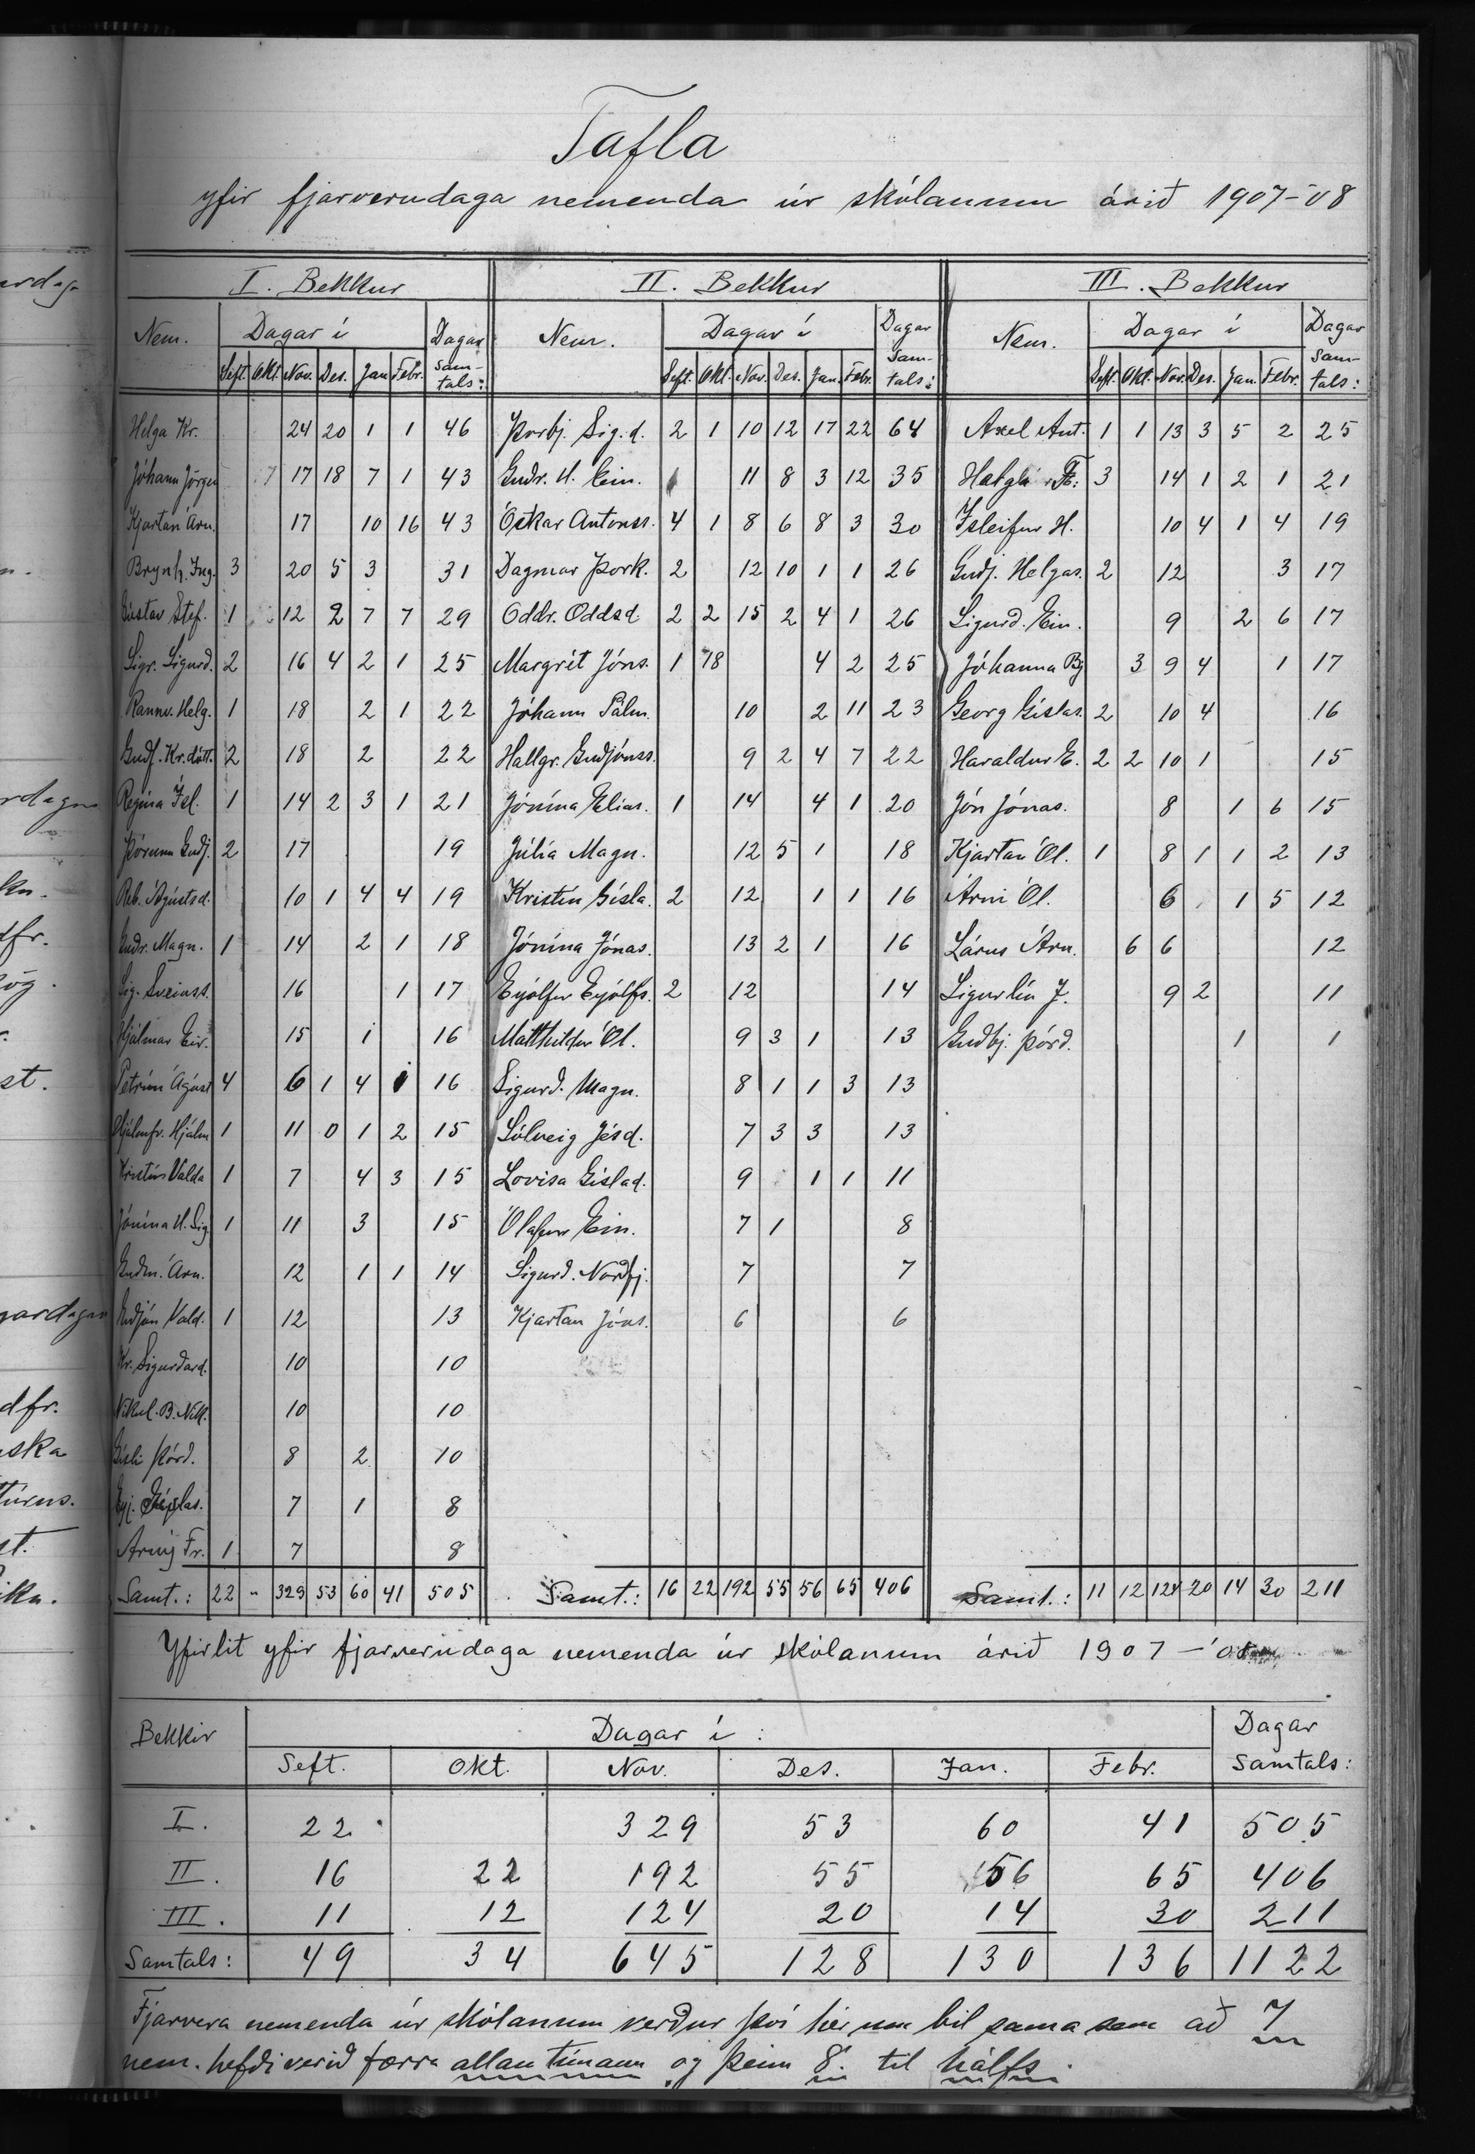 Tafla
yfir fjarverudaga nemenda úr skólanum árið 1907-08
I. Bekkur II. Bekkur III. Bekkur
Nem. Dagar í Dagar samtals: Nem. Dagar í Dagar samtals: Nem. Dagar í Dagar samtals:
Seft. Okt. Nov. Des. Jan. Febr. Seft. Okt. Nov. Des. Jan. Febr. Seft. Okt. Nov. Des. Jan. Febr.
Helga Kr. 24 20 1 1 46 Þorbj. Sig.d. 2 1 10 12 17 22 64 Axel Ant. 1 1 13 3 5 2 25
Jóhann Jörgen 17 18 7 1 43 Guðr. H. Ein. 1 11 8 3 12 35 Helga 3 14 1 2 1 21
Kjartan Árn. 17 10 16 43 Óskar Antonss. 4 1 8 6 8 3 30 Ísleifur H. 10 4 1 4 19
Brynh. Ing. 3 20 5 3 31 Dagmar Þork. 2 12 10 1 1 26 Guðj. Helgas. 2 12 3 17
Gústav Stef. 1 12 2 7 7 29 Oddr. Oddsd. 2 2 15 2 4 1 26 Sigurð. Ein. 9 2 6 17
Sigr. Sigurd. 2 16 4 2 1 25 Margrét Jóns. 1 18 4 2 25 Jóhanna Bj 3 9 4 1 17
Rannv. Helg. 1 18 2 1 22 Jóhann Pálm. 10 2 11 23 Georg Gíslas. 2 10 4 16
Guðf. Kr.dótt. 2 18 2 22 Hallgr. Guðjónss. 9 2 4 7 22 Haraldur E. 2 2 10 1 15
Regína Ísl. 1 14 2 3 1 21 Jónína Elías. 1 14 4 1 20 Jón Jónas. 8 1 6 15
Þórunn Guðj. 2 17 19 Júlía Magn. 12 5 1 18 Kjartan Ól. 1 8 1 1 2 13
Reb. Ágústsd. 10 1 4 4 19 Kristín Gísla. 2 12 1 1 16 Árni Ól. 6 1 5 12
Guðr. Magn. 1 14 2 1 18 Jónína Jónas. 13 2 1 16 Lárus Árn. 6 6 12
Sig. Sveinss. 16 1 17 Eyólfur Eyólfs. 2 12 14 Sigurlín J. 9 2 11
Hjálmar Eir. 15 1 16 Matthildur Ól. 9 3 1 13 Guðbj. Þórð. 1 1
Petrún Ágúst 4 6 1 4 1 16 Sigurð. Magn. 8 1 1 3 13
Hjálmfr. Hjálm 1 11 0 1 2 15 Sólveig Jésd. 7 3 3 13
Kristín Valda 1 7 4 3 15 Lovísa Gíslad. 9 1 1 11
Jónína H. Sig 1 11 3 15 Ólafur Ein. 7 1 8
Guðm. Árn. 12 1 1 14 Sigurð. Norðfj. 7 7
Guðjón Vald. 1 12 13 Kjartan Jóns. 6 6
Kr. Sigurðard. 10 10
Nikul. B. Nik. 10 10
Gísli Þórð. 8 2 10
7 1 8
Árný Fr. 1 7 8
Samt.: 22 " 329 53 60 41 505 Samt.: 16 22 192 55 56 65 406 Samt.: 11 12 124 20 14 30 211
Yfirlit yfir fjarverudaga nemenda úr skólanum árið 1907-'08
Bekkir Dagar í: Dagar Samtals:
Seft. Okt. Nov. Des. Jan. Febr.
I. 22 329 53 60 41 505
II. 16 22 192 55 56 65 406
III. 11 12 124 20 14 30 211
Samtals: 49 34 645 128 130 136 1122
Fjarvera nemenda úr skólanum verður því hér um bil sama sem að 7
nem. hefði verið færra allan tímann og þeim 8. til hálfs.